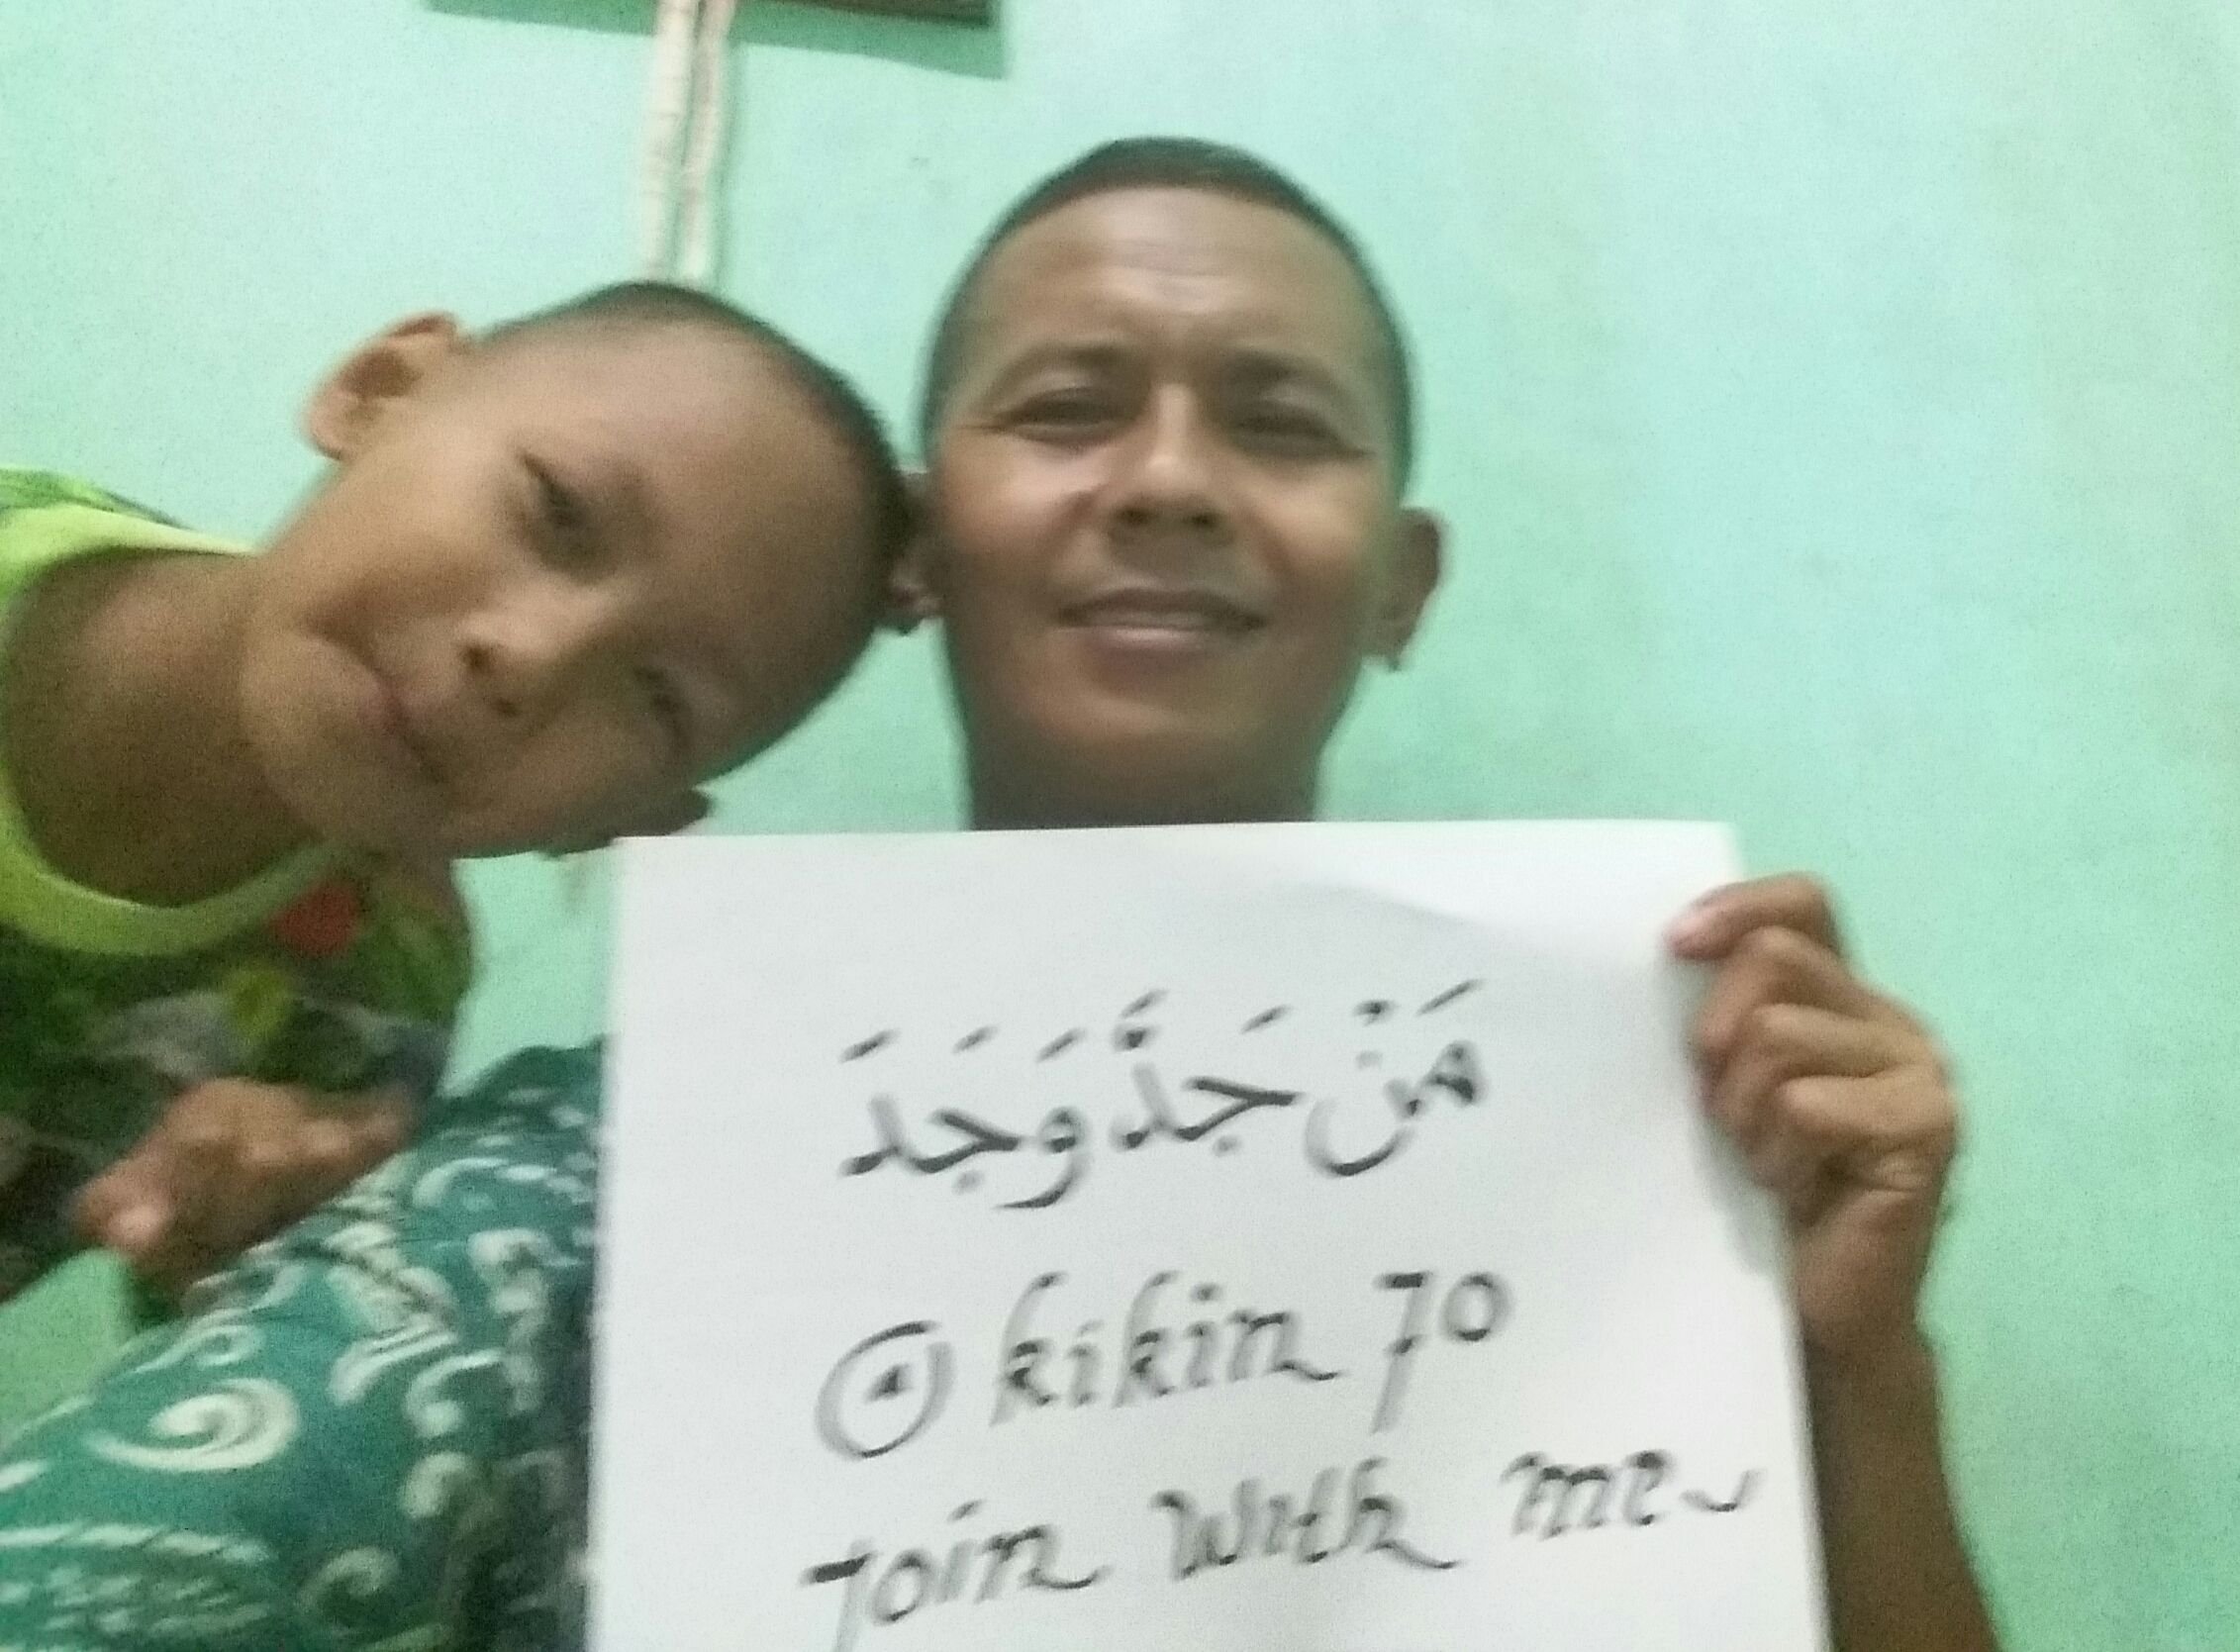 مَنْ جَدَّ وَجَدَ
@ kikin 70
Join with me